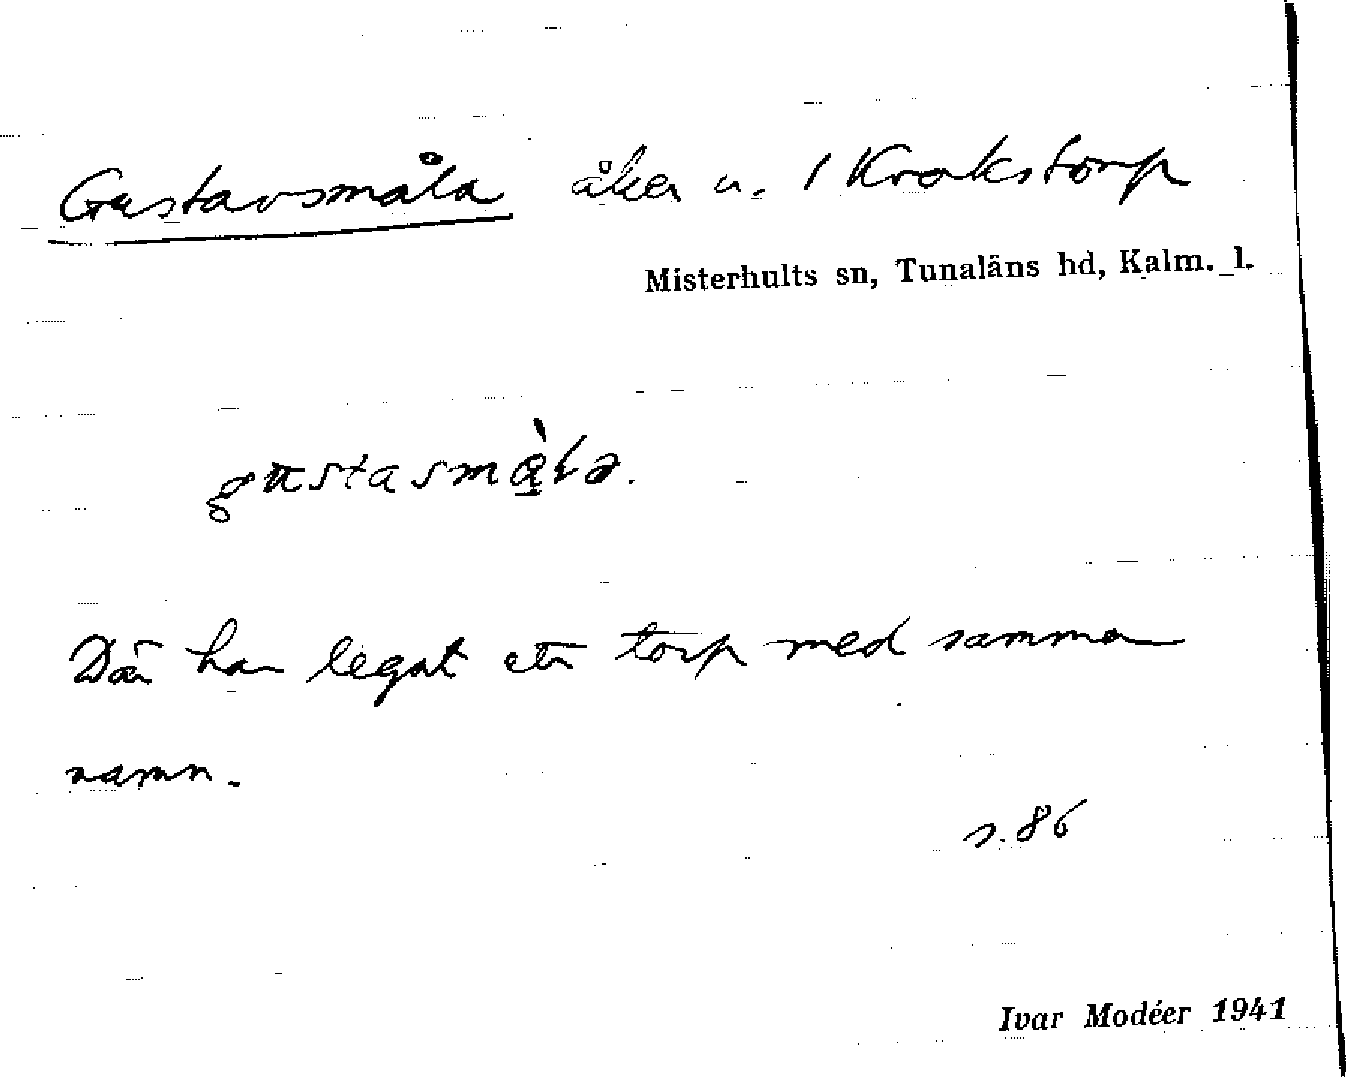 Gustavsmåla åker u. / Krokstorp
Misterhults sn, Tunaläns hd, Kalm. l.
gustasmålə.
Där har legat ett torp med samma
namn.
s. 86
Ivar Modéer 1941